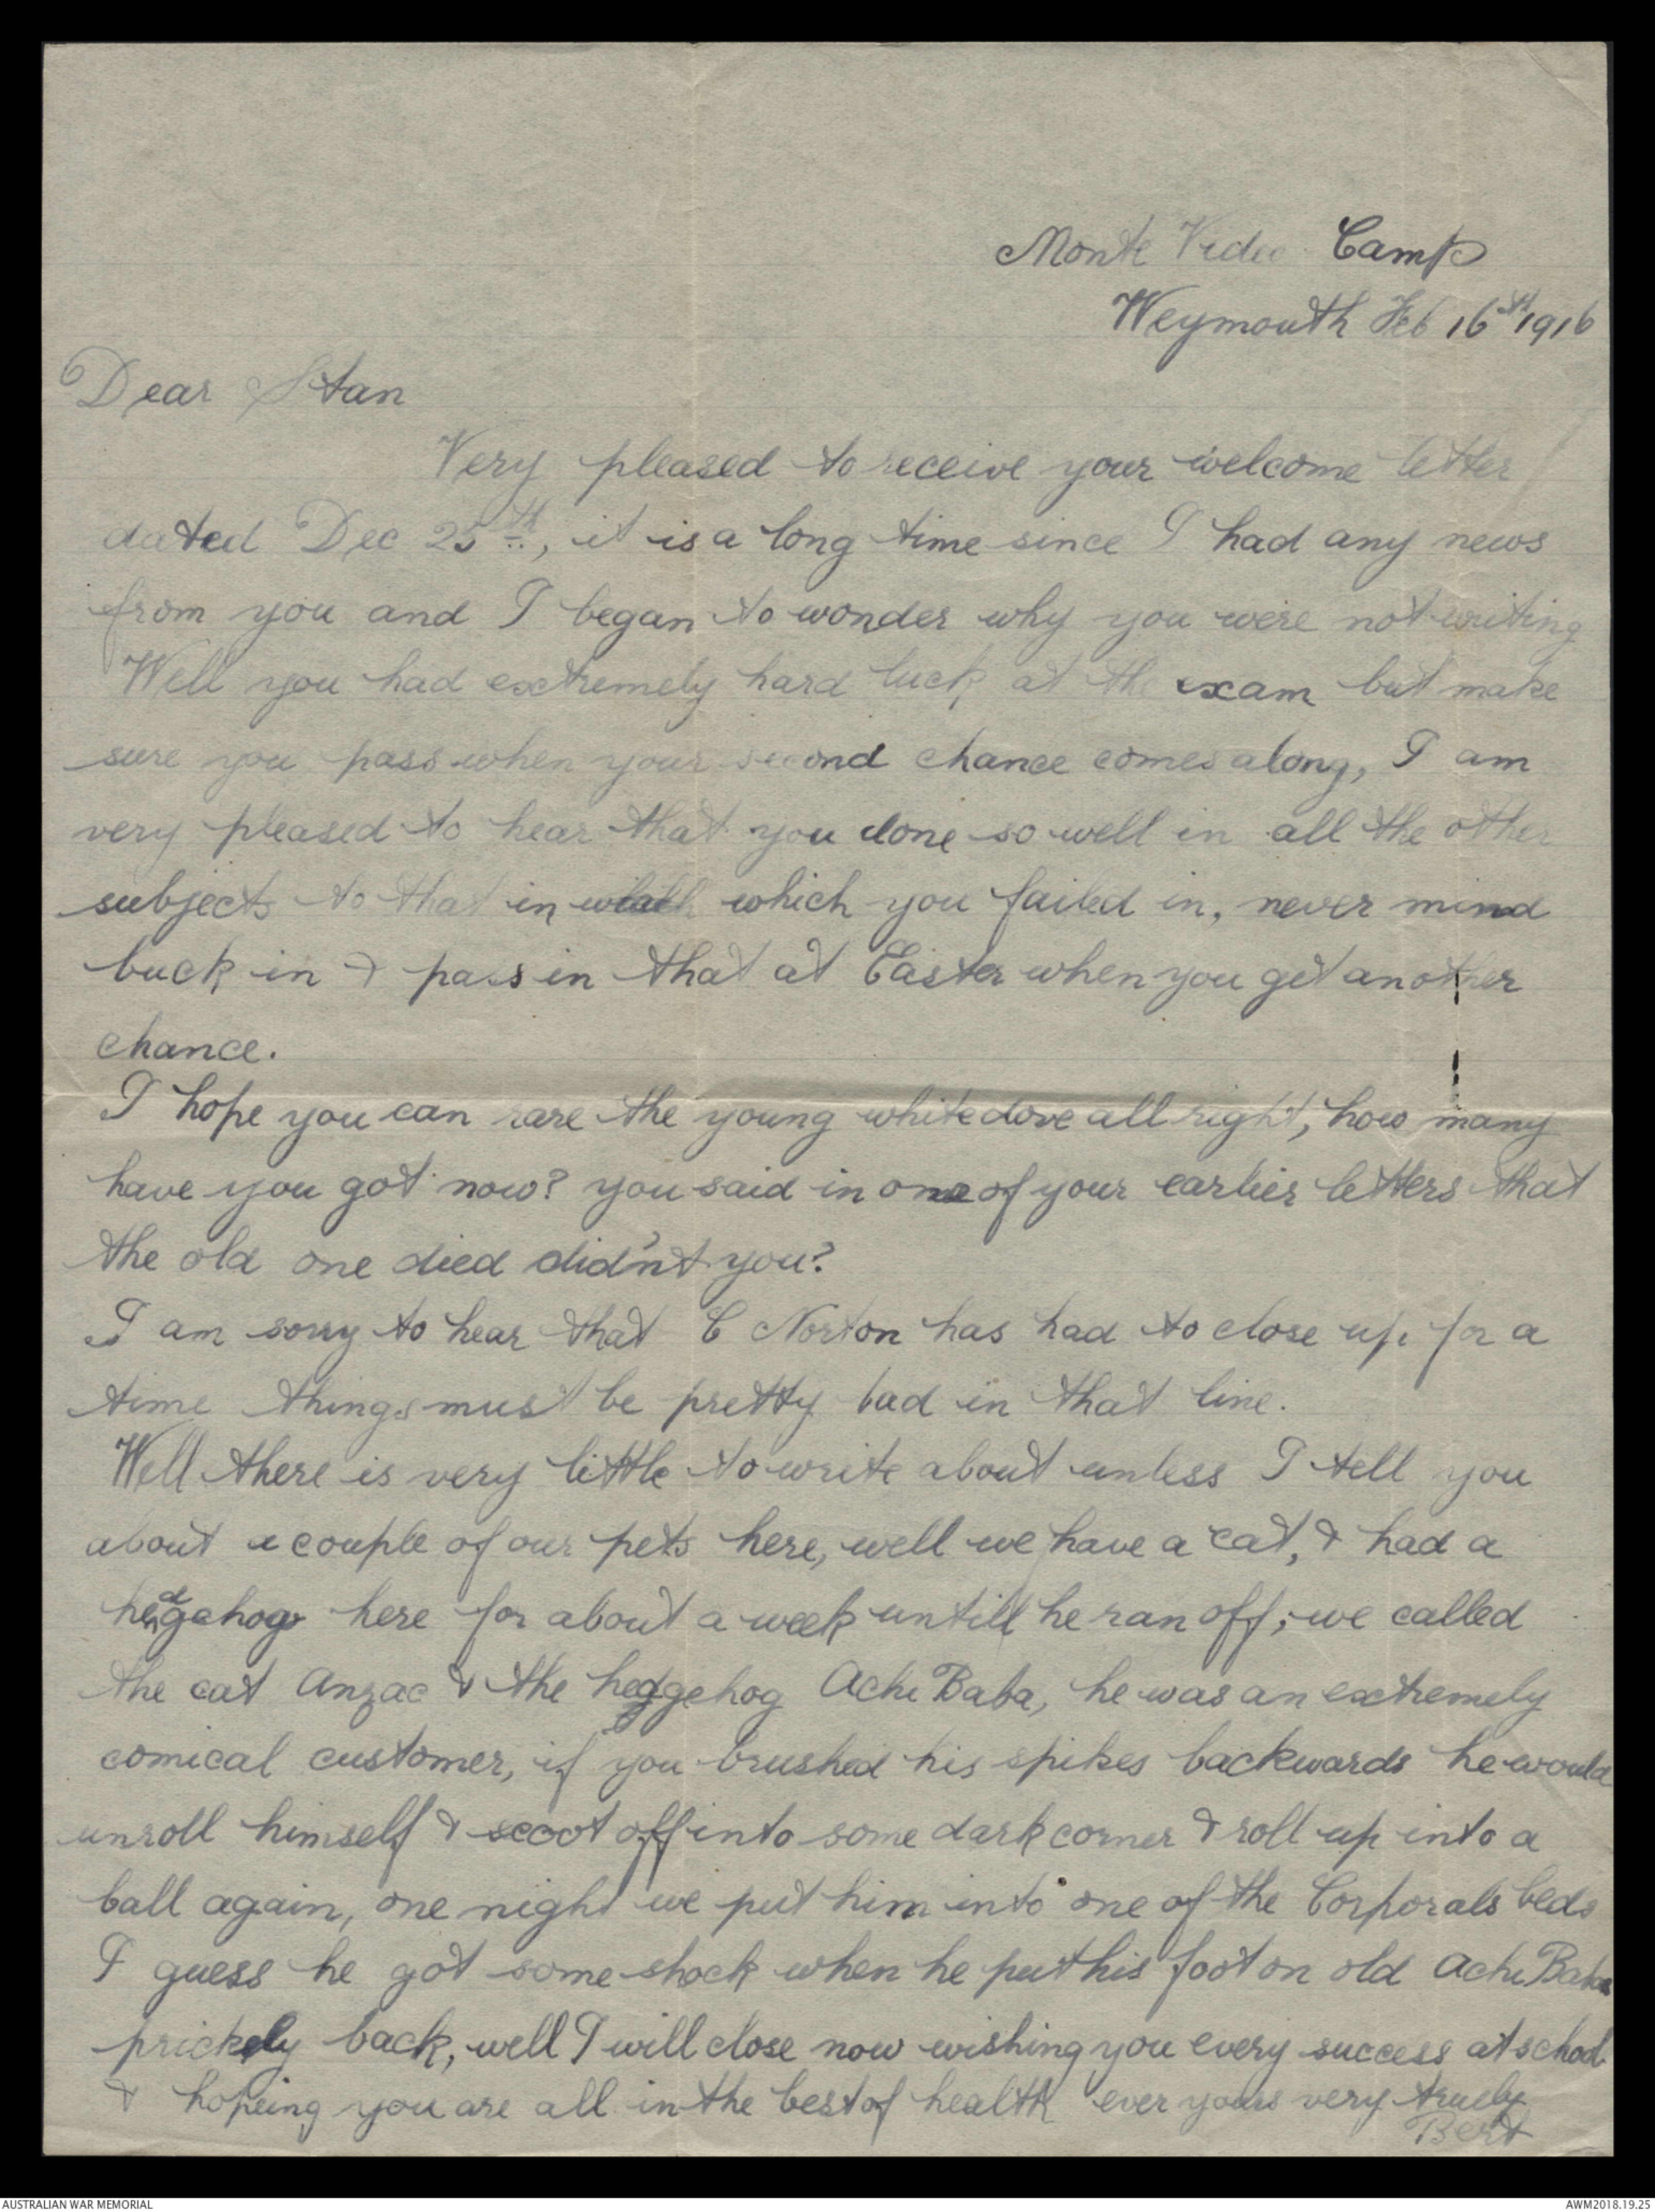 Monte Video Camp
Weymouth Feb 16th 1916
Dear Stan
Very pleased to receive your welcome letter
dated Dec 25th, it is a long time since I had any news
from you and I began to wonder why you were not writing
Well you had extremely hard luck at the exam but make
sure you pass when your second chance comes along, I am
very pleased to hear that you done so well in all the other
subjects to that in which you failed in, never mind
buck in & pass in that at Easter when you get another
chance.
I hope you can rare the young white dove all right, how many
have you got now? you said in one of your earlier letters that
the old one died did'nt you?
I am sorry to hear that C Norton has had to close up for a
time things must be pretty bad in that line.
Well there is very little to write about unless I tell you
about a couple of our pets here, well we have a cat, & had a
hedgehog here for about a week untill he ran off, we called
the cat Anzac & the hedgehog Achi Baba, he was an extremely
comical customer, if you brushed his spikes backwards he would
unroll himself & scoot off into some dark corner & roll up into a
ball again, one night we put him into one of the Corporals beds
I guess he got some shock when he put his foot on old Achi Babas
prickely back, well I will close now wishing you every success at school
& hopeing you are all in the best of health ever yours very truely
Bert
AUSTRALIAN WAR MEMORIAL
AWM2018.19.25